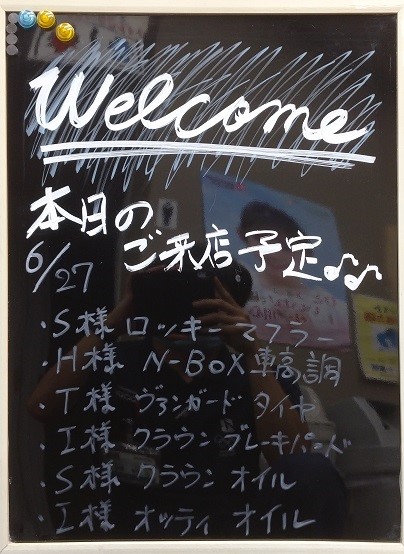 Welcome
本日の
ご来店予定♪♫
6/27
・S様 ロッキー マフラー
・H様 N-BOX 車高調
・T様 ヴァンガード タイヤ
・I様 クラウン ブレーキパッド
・S様 クラウン オイル
・I様 オッティ オイル